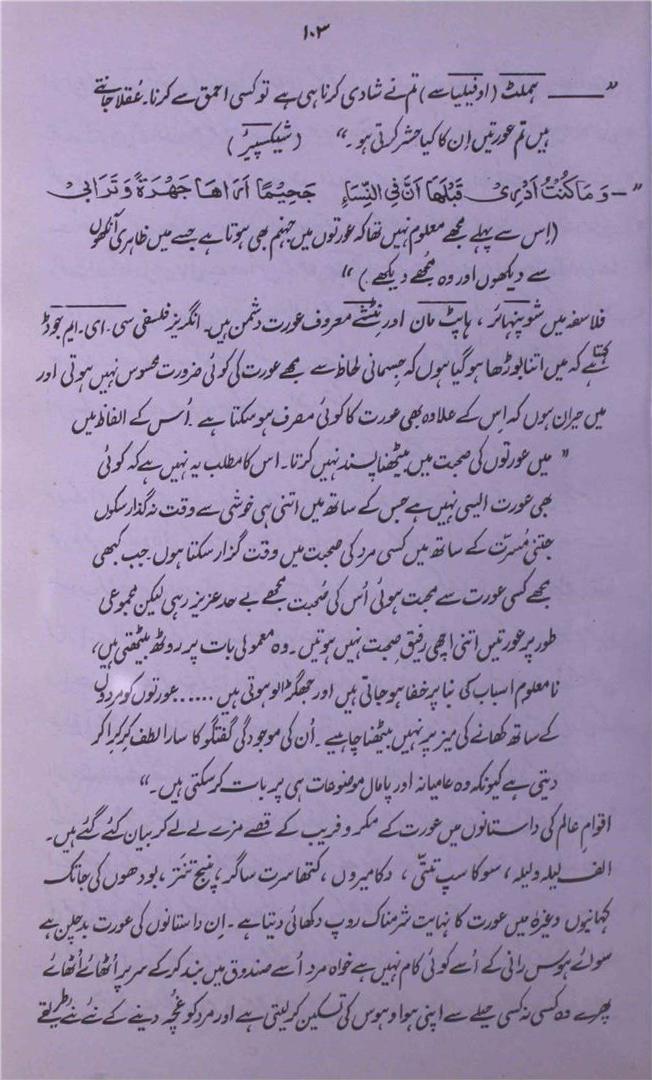 ۱۰۳
”ـــــ ہملٹ (اوفیلیا سے) تم نے شادی کرنا ہی ہے تو کسی احمق سے کرنا۔ عُقلا جانتے
ہیں تم عورتیں اِن کا کیا حشر کرتی ہو۔“ (شیکسپیئر)
”ـ وَمَا كُنْتُ أَدْرِى قَبْلَهَا أَنَّ فِى النِّسَاءِ جَحِيْمًا أَرَاهَا جَهْرَةً وَتَرَانِى
(اِس سے پہلے مجھے معلوم نہیں تھا کہ عورتوں میں جہنم بھی ہوتا ہے جسے میں ظاہری آنکھوں
سے دیکھوں اور وہ مُجھے دیکھے۔)“
فلاسفہ میں شوپنہائر، ہاپٹ مان اور نٹشے معروف عورت دشمن ہیں۔ انگریز فلسفی سی۔ای۔ایم جوڈ
کہتا ہے کہ میں اتنا بوڑھا ہو گیا ہوں کہ جسمانی لحاظ سے مجھے عورت کی کوئی ضرورت محسوس نہیں ہوتی اور
میں حیران ہوں کہ اِس کے علاوہ بھی عورت کا کوئی مصرف ہو سکتا ہے۔ اُس کے الفاظ میں
”میں عورتوں کی صحبت میں بیٹھنا پسند نہیں کرتا۔ اس کا مطلب یہ نہیں ہے کہ کوئی
بھی عورت ایسی نہیں ہے جس کے ساتھ میں اتنی ہی خوشی سے وقت نہ گذار سکوں
جتنی مُسرّت کے ساتھ میں کسی مرد کی صحبت میں وقت گزار سکتا ہوں۔ جب کبھی
مجھے کسی عورت سے محبت ہوئی اُس کی صُحبت مجھے بے حد عزیز رہی لیکن مجموعی
طور پر عورتیں اتنی اچھی رفیقِ صحبت نہیں ہوتیں۔ وہ معمولی بات پر روٹھ بیٹھتی ہیں،
نامعلوم اسباب کی بنا پر خفا ہو جاتی ہیں اور جھگڑالو ہوتی ہیں ..... عورتوں کو مردوں
کے ساتھ کھانے کی میز پر نہیں بیٹھنا چاہیے۔ اُن کی موجودگی گفتگو کا سارا لطف کِرکِرا کر
دیتی ہے کیونکہ وہ عامیانہ اور پامال موضوعات ہی پر بات کر سکتی ہیں۔“
اقوامِ عالم کی داستانوں میں عورت کے مکر و فریب کے قصے مزے لے لے کر بیان کئے گئے ہیں۔
الف لیلہ ولیلہ، سوکا سپ تتی، دکامیروں، کتھا سرت ساگر، پنچ تنتر، بودھوں کی جاتک
کہانیوں وغیرہ میں عورت کا نہایت شرمناک روپ دکھائی دیتا ہے۔ اِن داستانوں کی عورت بدچلن ہے
سوائے ہوس رانی کے اُسے کوئی کام نہیں ہے خواہ مرد اُسے صندوق میں بند کر کے سر پر اُٹھائے اُٹھائے
پھرے وہ کسی نہ کسی حیلے سے اپنی ہوا و ہوس کی تسکین کر لیتی ہے اور مرد کو غچّہ دینے کے نئے نئے طریقے